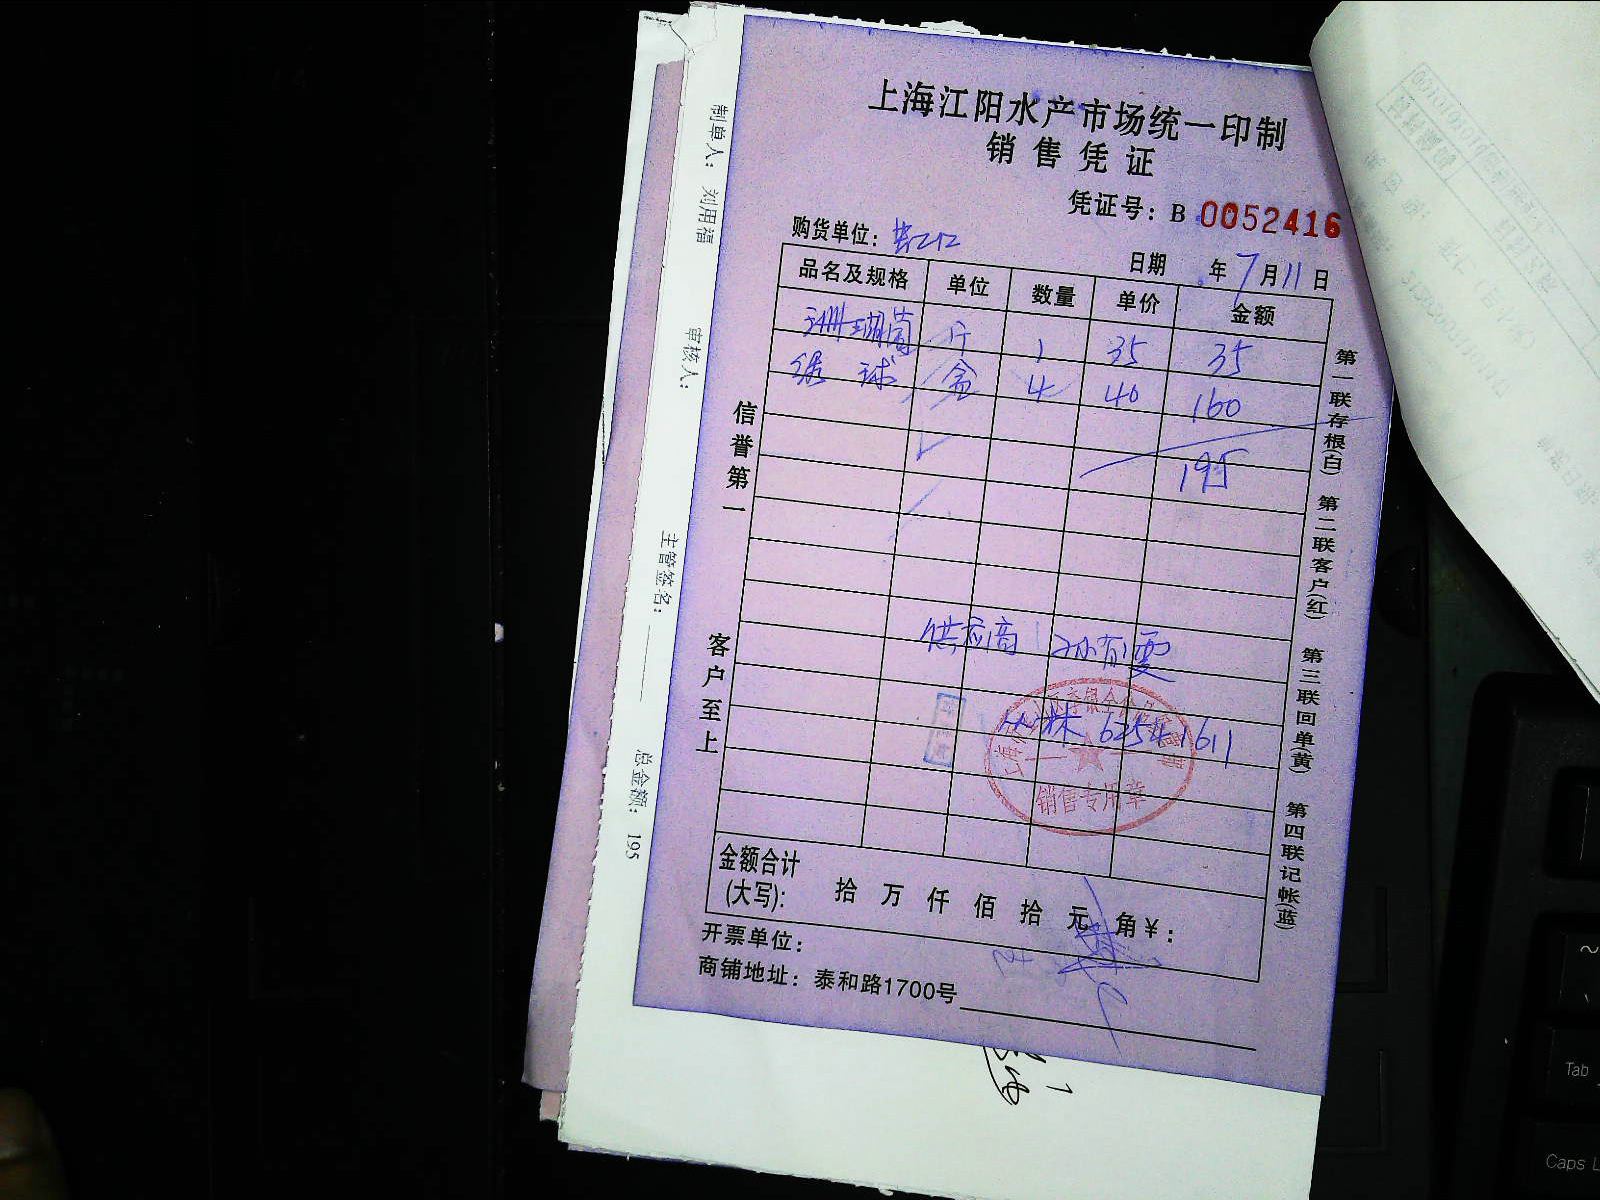 上海江阳水产市场统一印制
销售凭证
凭证号：B 0052416
购货单位：
日期 年7月11日
品名及规格 单位 数量 单价 金额
珊瑚菌 斤 1 35 35
绿球 盒 4 40 160
195
供应商 孙有雯
62541611
销售专用章
金额合计
(大写)： 拾 万 仟 佰 拾 元 角￥：
开票单位：
商铺地址：泰和路1700号
信誉第一
客户至上
第一联存根(白) 第二联客户(红) 第三联回单(黄) 第四联记帐(蓝)
制单人： 刘用福
审核人：
主管签名：
总金额： 195
Tab
Caps L